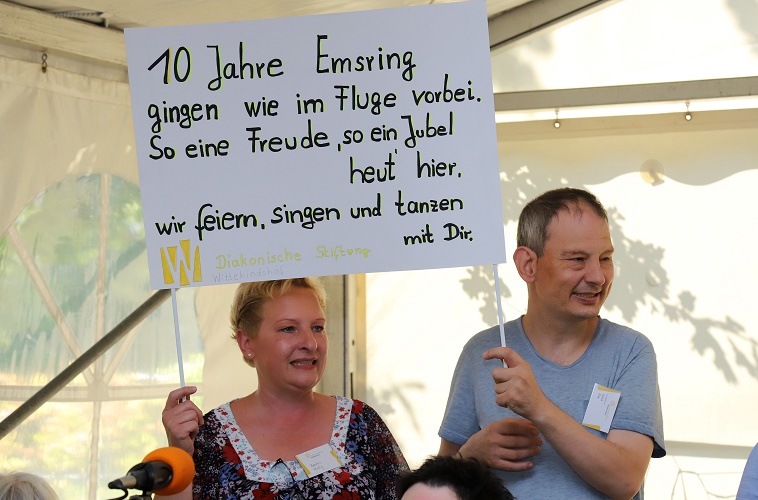 10 Jahre Emsring
gingen wie im Fluge vorbei.
So eine Freude, so ein Jubel
heut' hier,
wir feiern, singen und tanzen
mit Dir.
W Diakonische Stiftung
Wittekindshof